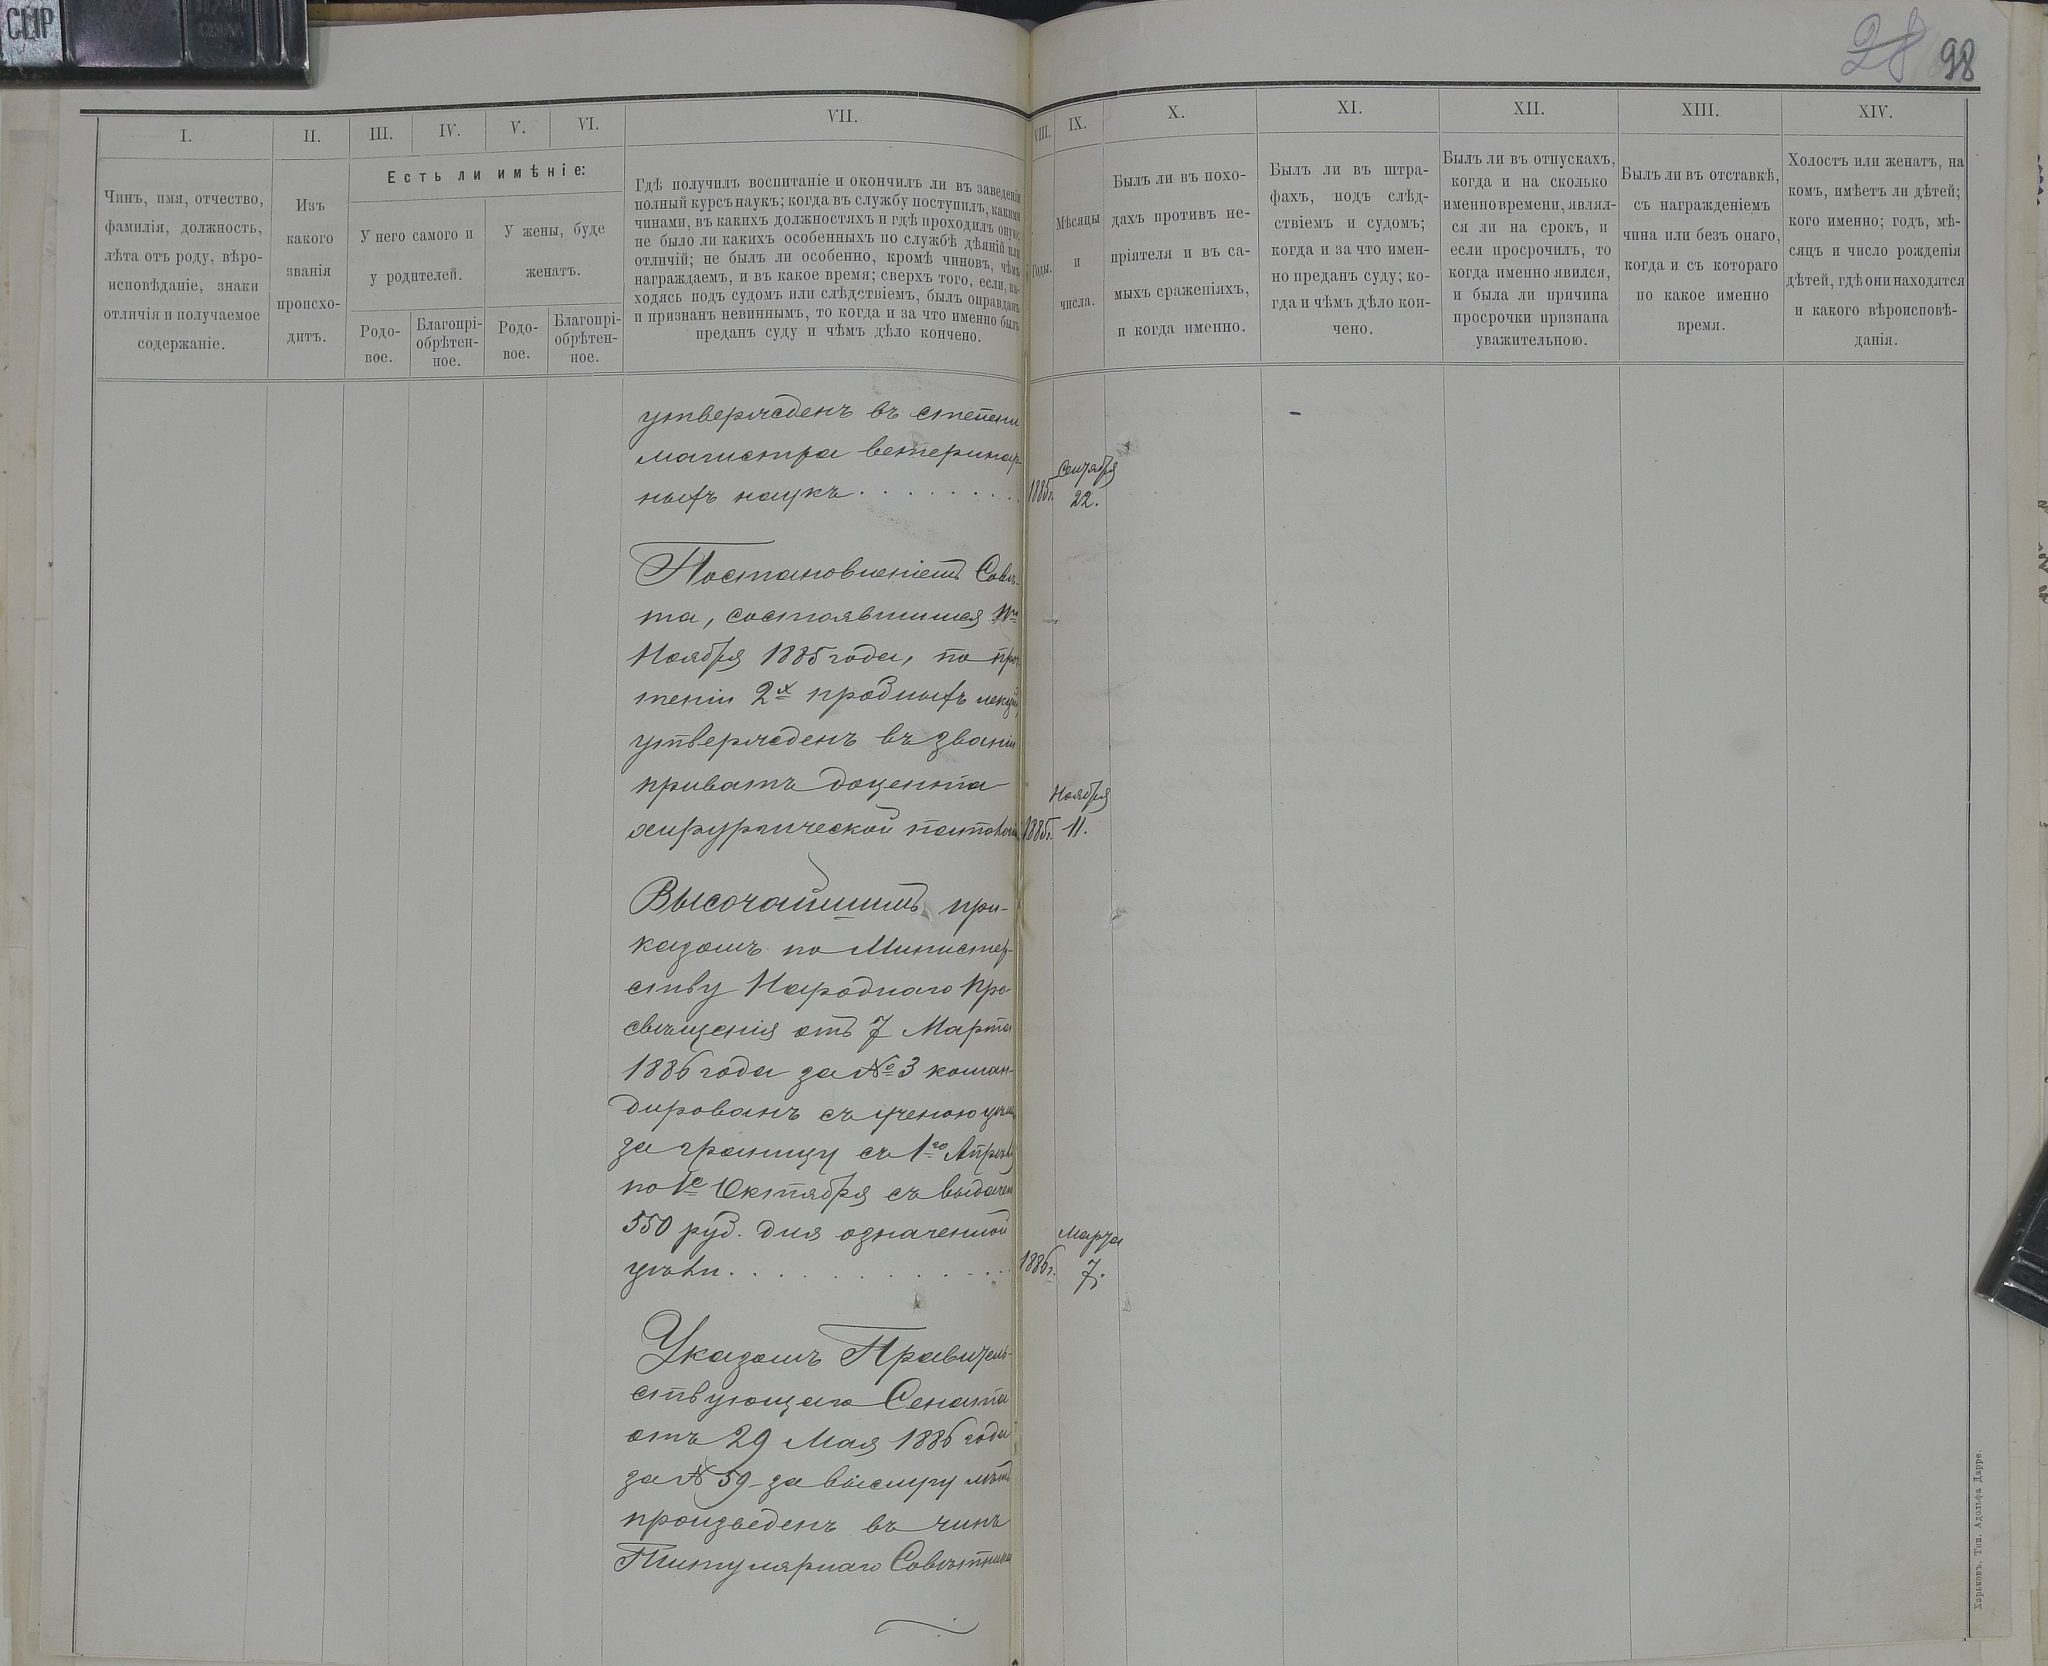 CLIP
28
98
I.
II.
III.
IV.
V.
VI.
VII.
VIII.
IX.
X.
XI.
XII.
XIII.
XIV.
Чинъ, имя, отчество,
фамилія, должность,
лѣта отъ роду, вѣро-
исповѣданіе, знаки
отличія и получаемое
содержаніе.
Изъ
какого
званія
происхо-
дитъ.
Есть ли имѣніе:
У него самого и
у родителей.
У жены, буде
женатъ.
Родо-
вое.
Благопрі-
обрѣтен-
ное.
Родо-
вое.
Благопрі-
обрѣтен-
ное.
Гдѣ получилъ воспитаніе и окончилъ ли въ заведеніи
полный курсъ наукъ; когда въ службу поступилъ, какими
чинами, въ какихъ должностяхъ и гдѣ проходилъ оную;
не было ли какихъ особенныхъ по службѣ дѣяній или
отличій; не былъ ли особенно, кромѣ чиновъ, чѣмъ
награждаемъ, и въ какое время; сверхъ того, если, на-
ходясь подъ судомъ или слѣдствіемъ, былъ оправданъ
и признанъ невиннымъ, то когда и за что именно былъ
преданъ суду и чѣмъ дѣло кончено.
Годы.
Мѣсяцы
и
числа.
Былъ ли въ похо-
дахъ противъ не-
пріятеля и въ са-
мыхъ сраженіяхъ,
и когда именно.
Былъ ли въ штра-
фахъ, подъ слѣд-
ствіемъ и судомъ;
когда и за что имен-
но преданъ суду; ко-
гда и чѣмъ дѣло кон-
чено.
Былъ ли въ отпускахъ,
когда и на сколько
именно времени, являл-
ся ли на срокъ, и
если просрочилъ, то
когда именно явился,
и была ли причина
просрочки признана
уважительною.
Былъ ли въ отставкѣ,
съ награжденіемъ
чина или безъ онаго,
когда и съ котораго
по какое именно
время.
Холостъ или женатъ, на
комъ, имѣетъ ли дѣтей;
кого именно; годъ, мѣ-
сяцъ и число рожденія
дѣтей, гдѣ они находятся
и какого вѣроисповѣ-
данія.
утвержденъ въ степени
магистра ветеринар
ныхъ наукъ . . . . . . . .
1885г.
Сентября
22.
Постановленіемъ Совѣ-
та, состоявшимся 11го
Ноября 1885 года, по проч
теніи 2х пробныхъ лекцій,
утвержденъ въ званіи
приватъ доцента
хирургической патологіи
1885г.
Ноября
11.
Высочайшимъ при-
казомъ по Министер-
ству Народнаго Про-
свѣщенія отъ 7 Марта
1886 года за № 3 коман-
дированъ съ ученою цѣлью
за границу съ 1го Апрѣля
по 1е Октября съ выдачею
550 руб. для означенной
цѣли . . . . . . . . . . .
1886г.
Марта
7.
Указомъ Правитель-
ствующаго Сената
отъ 29 Мая 1886 года
за № 59 за выслугу лѣтъ
произведенъ въ чинъ
Титулярнаго Совѣтника
Харьковъ. Тип. Адольфа Дарре.